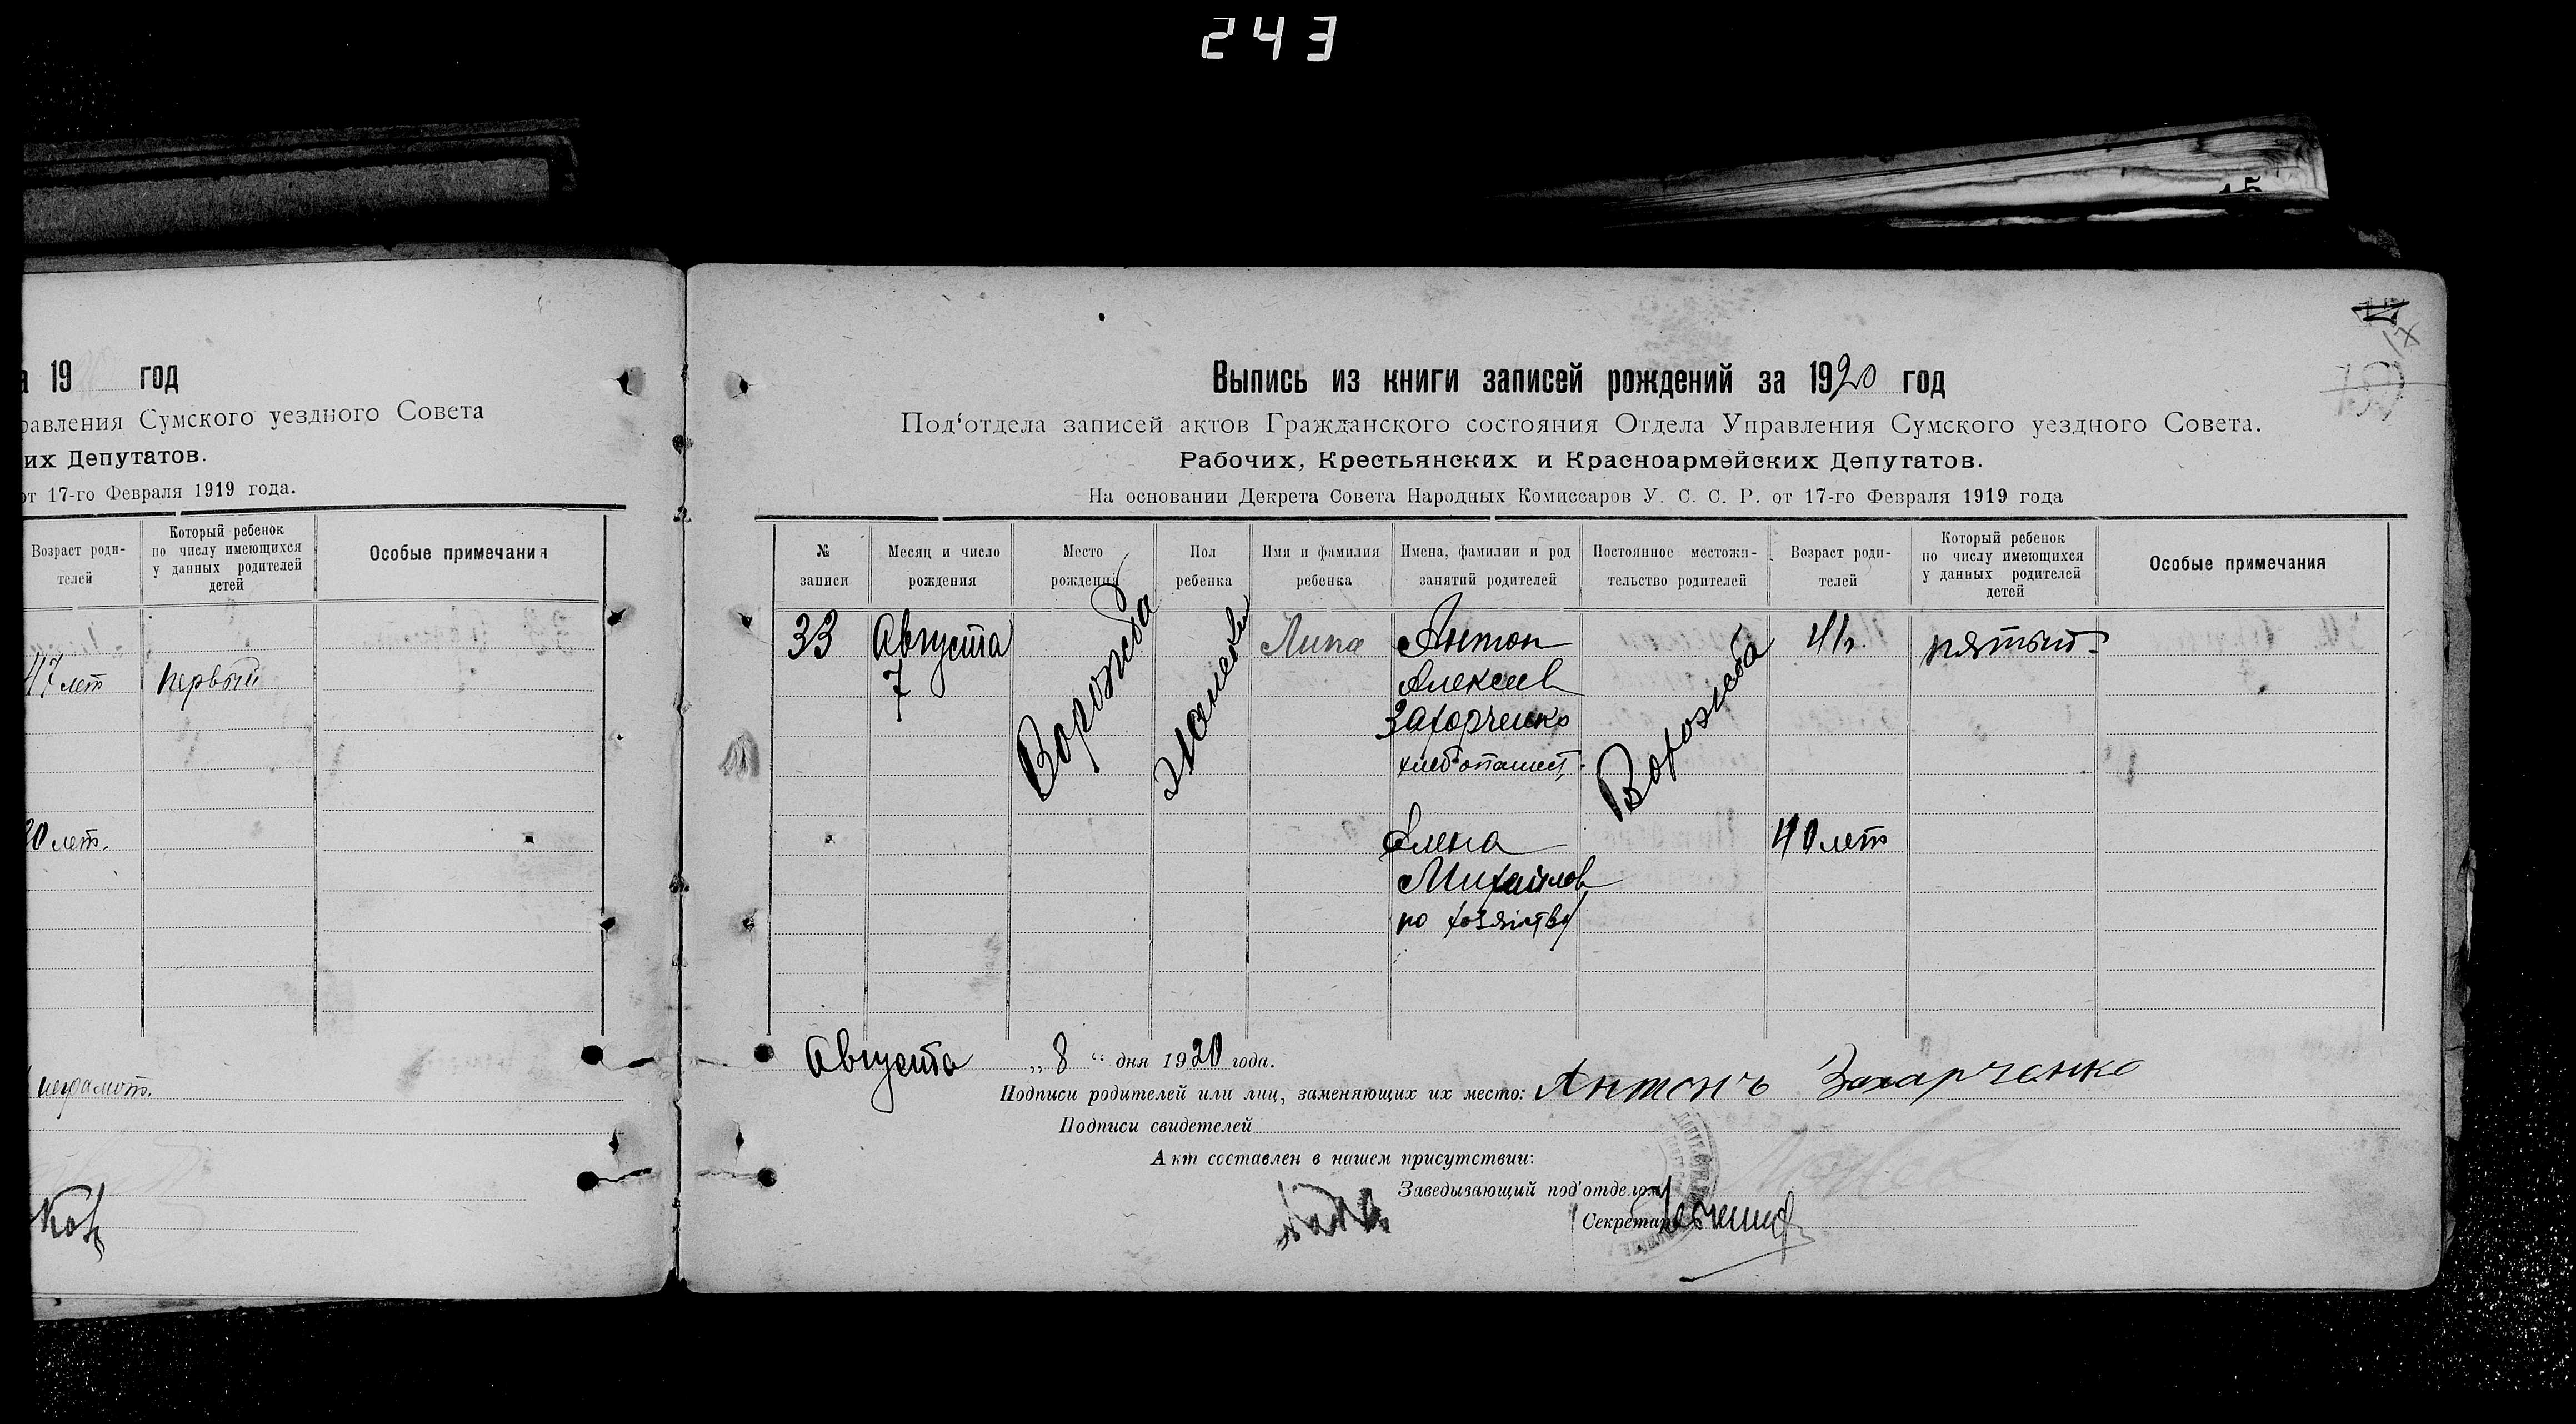 243
а 19 год
равления Сумского уездного Совета
их Депутатов.
от 17-го Февраля 1919 года.
Возраст роди-
телей
Который ребенок
по числу имеющихся
у данных родителей
детей
Особые примечания
47 лет
первый
30 лет.
неграмот.
ков
15
Выпись из книги записей рождений за 1920 год
Под‘отдела записей актов Гражданского состояния Отдела Управления Сумского уездного Совета.
Рабочих, Крестьянских и Красноармейских Депутатов.
На основании Декрета Совета Народных Комиссаров У. С. С. Р. от 17-го Февраля 1919 года
№
записи
Месяц и число
рождения
Место
рождения
Пол
ребенка
Имя и фамилия
ребенка
Имена, фамилии и род
занятий родителей
Постоянное местожи-
тельство родителей
Возраст роди-
телей
Который ребенок
по числу имеющихся
у данных родителей
детей
Особые примечания
33
Августа
7
Ворожба
женский
Антон
Алексеев
Захорченко
хлебопашец
Ворожба
пятый
Елена
Михайлов
по хозяйству
40 лет
Августа „8“ дня 1920 года.
Подписи родителей или лиц, заменяющих их место: Антонъ Захарченко
Подписи свидетелей
Акт составлен в нашем присутствии:
Заведывающий под‘отделом
Секретарь